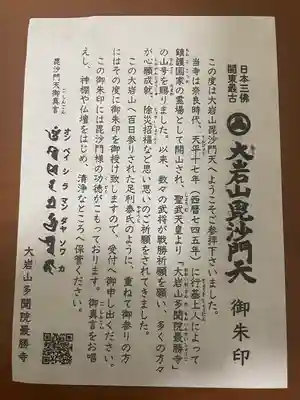 日本三佛
関東最古
大岩山毘沙門天 御朱印
この度は大岩山毘沙門天へようこそご参拝下さいました。
当寺は奈良時代、天平十七年（西暦七四五年）に行基上人によって
鎮護国家の霊場として開山され、聖武天皇より「大岩山多聞院最勝寺」
の山号を賜りました。以来、数々の武将が戦勝祈願を願い、多くの方々
が心願成就、除災招福など思い思いのご祈願をされてきました。
この大岩山へ百日参りされた足利泰氏のように、重ねて御参りの方
にはその度に御朱印を御授け致しますので、受付へ御申し出ください。
この御朱印には毘沙門様の功徳がこもっております。御真言をお唱
えし、神棚や仏壇をはじめ、清浄なところへ保管ください。
毘沙門天御真言
ごしんごん
オン ベイ シ ラ マン ダヤ ソワ カ
大岩山多聞院最勝寺